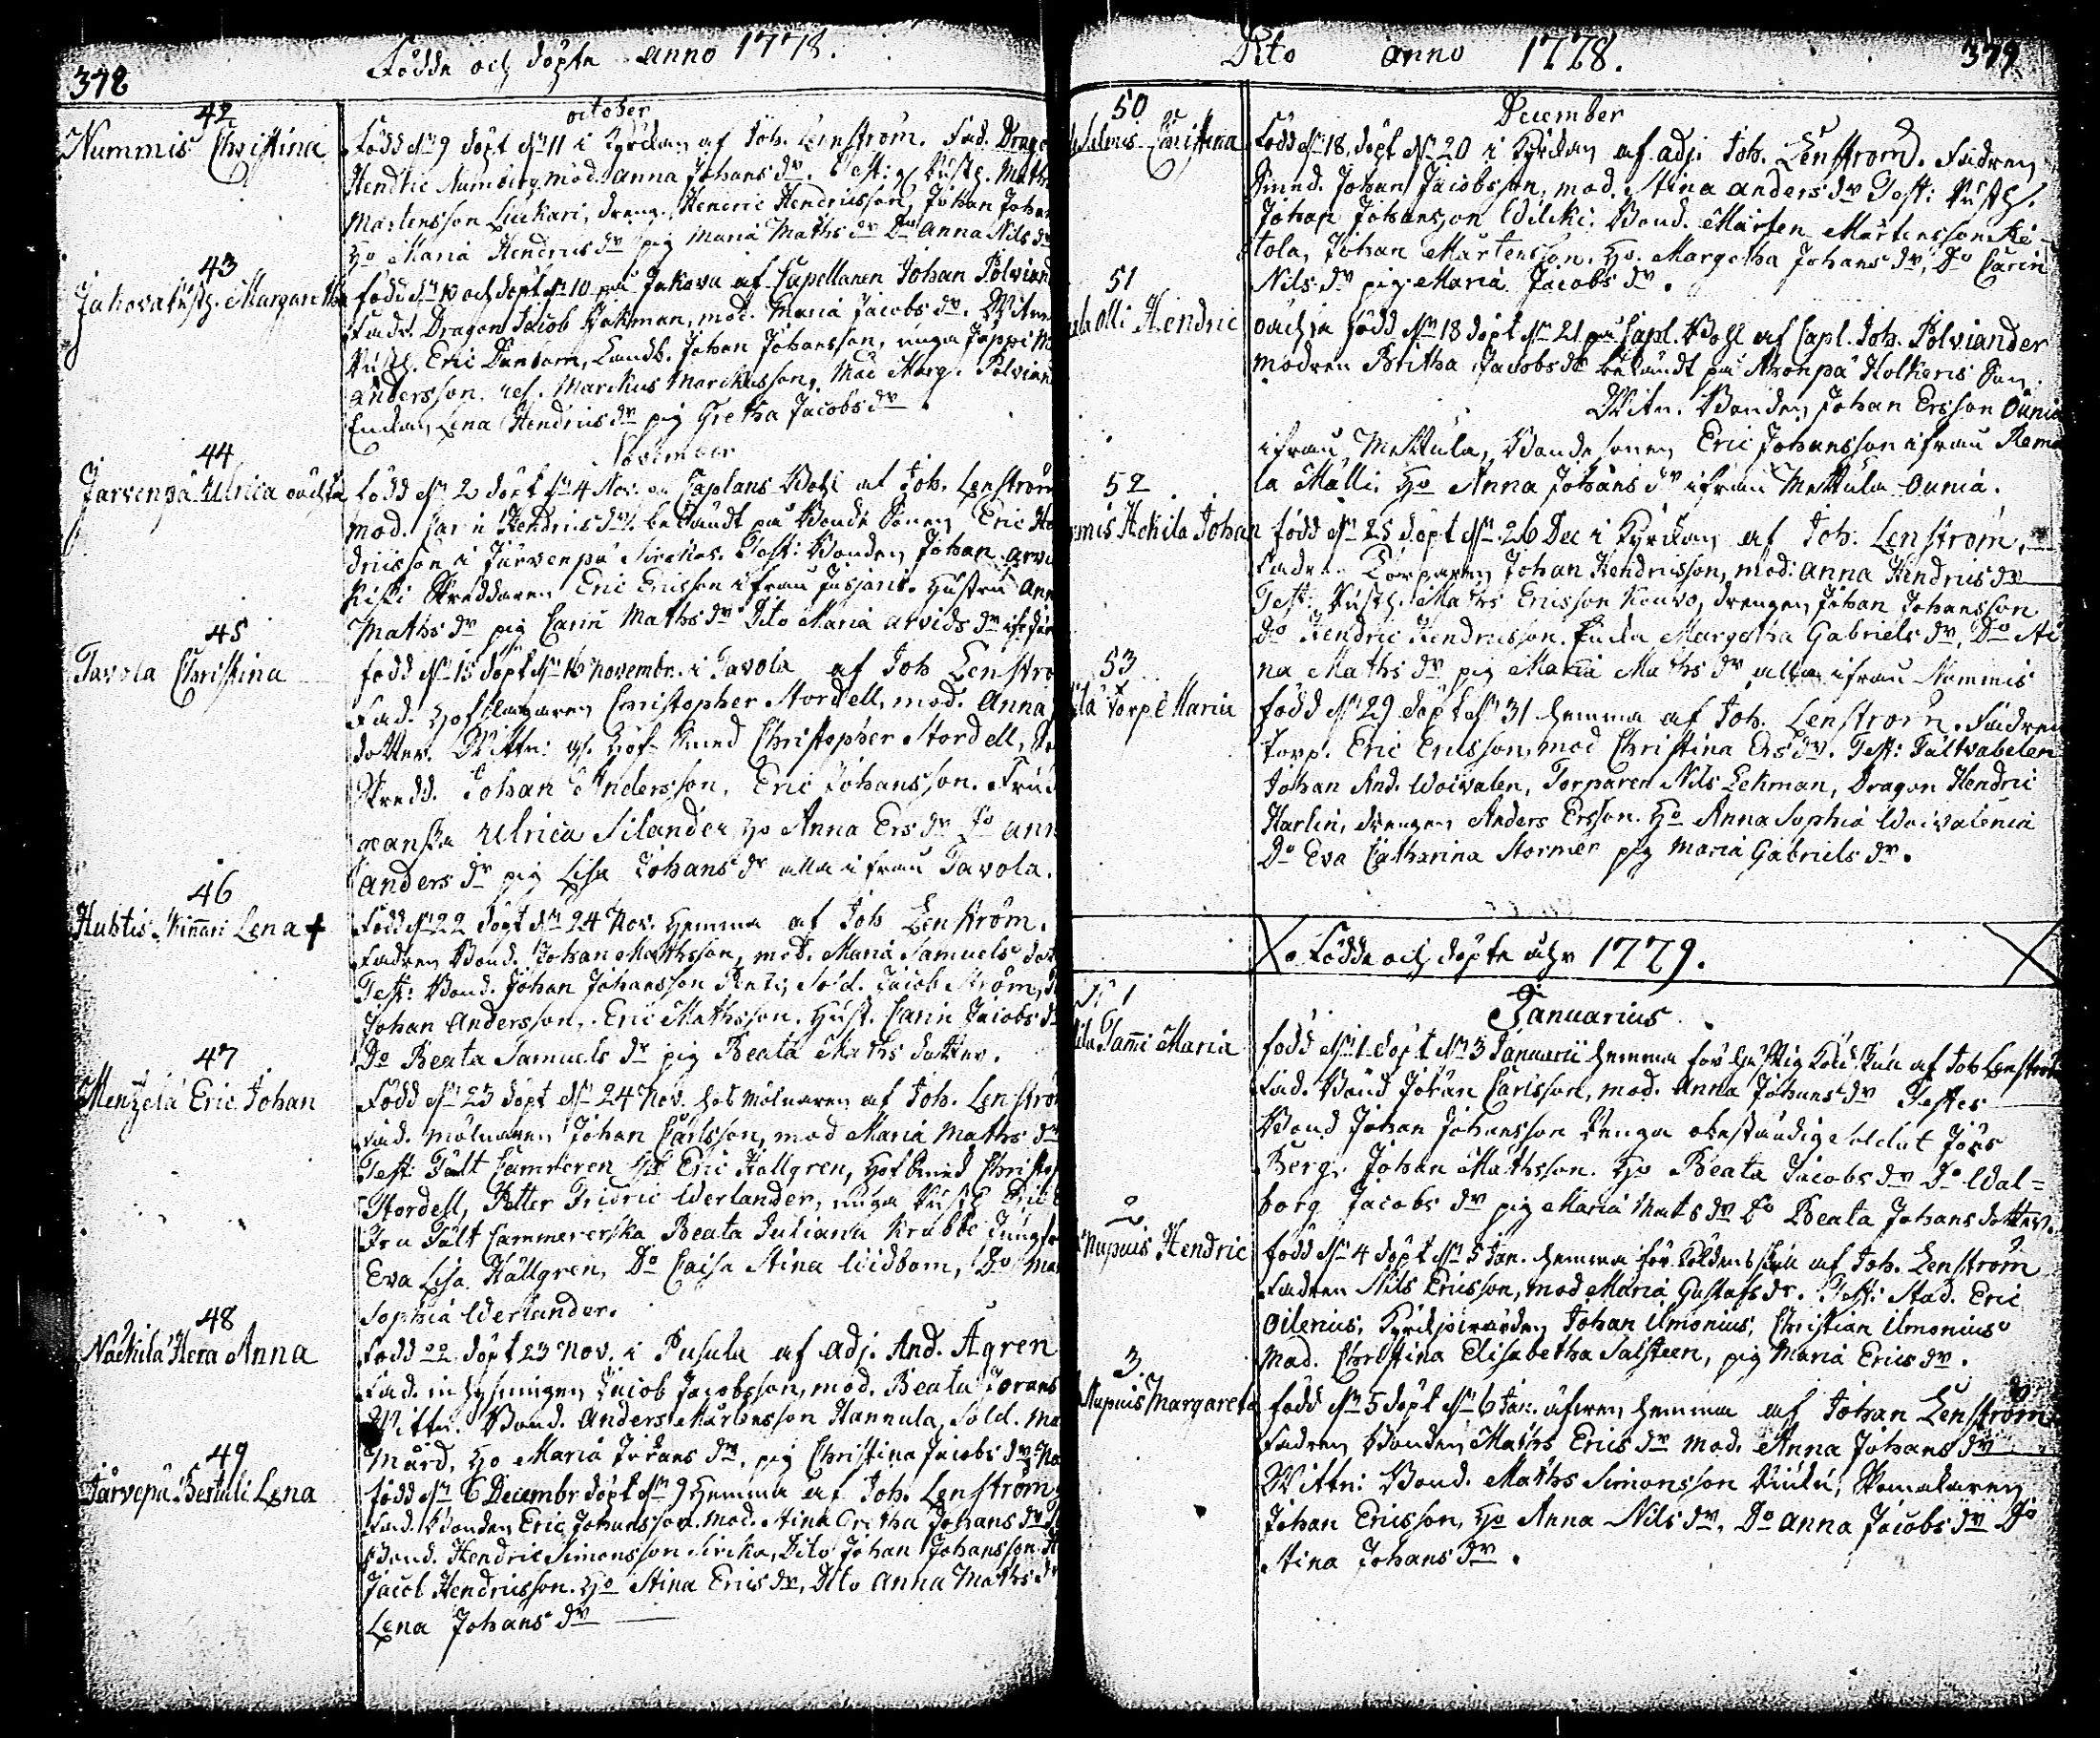 378
Födde och döpte anno 1778.
october
42
Nummis Christina
Född dn 9 döpt dn 11 i Kyrckan af Joh. Lenström. Fad. Drag
Hendric Numberg, mod. Anna Johans dr. Test: Rusth. Math
Mårtensson Liuckari, dreng. Hendric Hendricsson, Johan Johan
Ho Maria Hendrics dr pig Maria Maths dr Do Anna Nils dr
43
Jakova Rusth. Margaretha
född dn 10 och döpt dn 10 på Jakova af Capellanen Johan Polviand
Fadr. Dragon Jacob Bökman, mod. Maria Jacobs dr. Witne
Rusth. Eric Landb. Johan Johansson, unga
Andersson. Marckus Marckusson, Mad Marg. Polvian
Enckan Lena Hendrics dr pig Gretha Jacobs dr
November
44
Järvenpä Ulrica oächta
född dn 2 döpt dn 4 Nov. på Caplans Bohl af Joh. Lenström
mod. Carin Hendrics dr. belägradt på Bonde Sonen Eric He
dricsson i Järvenpä Sirckas. Test: Bonden Johan Arvi
Skreddaren Eric Ericsson ifrån Hustru Ann
Maths dr pig Carin Maths dr Dito Maria Arvids dr
45
Tavola Christina
född dn 15 döpt dn 16 Novembr. i Tavola af Joh Lenströ
Fad. Hofslagaren Christopher Nordell, mod. Anna
dotter. Wittn: gl. Hof-Smed Christopher Nordell,
Skredd. Johan Andersson, Eric Johansson. Fru
Ulrica Silander, Ho Anna Ers dr Do Ann
Anders dr pig Lisa Johans dr alla ifrån Tavola.
46
Huhtis Kiñari Lena +
Född dn 22 döpt dn 24 Nov. hemma af Joh Lenström.
Fadren Bond. Johan Mathsson, mod. Maria Samuels dot
Test: Bond. Johan Johansson Sold. Jacob Ström,
Johan Andersson, Eric Mathsson. Hust. Carin Jacobs d
Do Beata Samuels dr pig Beata Maths dotter.
47
Menzelä Eric Johan
Född dn 23 döpt dn 24 Nov. hos Mölnaren af Joh. Lenströ
Fad. Mölnaren Johan Carlsson, mod Maria Maths dr
Test: Fält Camreren Eric Hällgren, Hofsmed Christop
Nordell, Petter Fridric Werlander, unga Rusth Eric
Fru Fält Cammererska Beata Juliana Krabbe Jungfr
Eva Lisa Hällgren, Do Caisa Stina Widbom, Do Ma
Sophia Werlander.
48
Näckilä Hera Anna
Född 22 döpt 23 Nov. i Pusula af Adj. And. Agren
Fad. inhysningen Jacob Jacobsson, mod. Beata Jörans
Wittn. Bond. Anders Mårtensson Hannula, Sold. Ma
Mård, Ho Maria Jörans dr, pig Christina Jacobs dr
49
Järvepä Bestuli Lena
född dn 6 Decembr döpt dn 9 hemma af Joh. Lenström
Fad. Bonden Eric Johansson. mod. Stina Cretha Johans dr
Bond. Hendric Simonsson Sirika, Dito Johan Johansson
Jacob Hendricsson. Ho Stina Erics dr, Dito Anna Maths d
Lena Johans dr
Dito anno 1778. 379
December
50
Selmis Christina
Född dn 18, döpt dn 20 i Kyrckan af adj. Joh. Lenström. Fadren
Smed. Johan Jacobsson, mod. Stina Anders dr Test: Rusth.
Johan Johansson Wilcki. Bond. Mårten Mårtensson
tola, Johan Mårtensson. Ho. Margetha Johans dr, Do Carin
Nils dr pig. Maria Jacobs dr.
51
Olli Hendric
oächta född dn 18 döpt dn 21 på Capl. Bohl af Capl. Joh. Polviander
modren Britha Jacobs dr Son.
Witn. Bonden Johan Ersson Ounia
ifrån Mettula, Bonde sonen Eric Johansson ifrån Reme
la Mälli. Ho Anna Johans dr ifrån Mettula Ounia.
52
mis Hekila Johan
född dn 25 döpt dn 26 Dec i Kyrckan af Joh. Lenström,
Fadren Torparen Johan Hendricsson, mod: Anna Hendrics dr
Test: Rusth. Maths Ericsson Kouvo, drengen Johan Johansson
do Hendric Hendricsson. Encka Margetha Gabriels dr, Do Sti
na Maths dr pig Maria Maths dr alla ifrån Nommis
53
torp Maria
född dn 29 döpt dn 31 hemma af Joh. Lenström. Fadren
Torp. Eric Ericsson, mod Christina Ers dr. Test: Fältväbelen
Johan And. Woivalen, Torparen Nils Lekman, Dragon Hendric
Harlin, drengen Anders Ersson. Ho Anna Sophia Woivalenia
Do Eva Catharina Stormer pig Maria Gabriels dr.
Födde och döpte åhr 1779.
N. 1
Januarius
Tam̃i Maria
född dn 1 döpt dn 3 Januarii hemma för häftig köld skull af Joh Lenström
Fad. Bond Johan Carlsson, mod. Anna Johans dr Testes
Bond Johan Johansson Soldat Jöns
Berg. Johan Mathsson. Ho Beata Jacobs dr Do Wal=
borg Jacobs dr pig Maria Mats dr Do Beata Johans dotter.
2
Nupuis Hendric
född dn 4 döpt dn 5 Jan. hemma för köldens skull af Joh. Lenström
Fadren Nils Ericsson, mod Maria Gustafs dr. Test: Stad. Eric
Oilenius, Kyrckjovärden Johan Ilmonius, Christian Ilmonius
Mad. Christina Elisabetha Salsteen, pig Maria Erics dr.
3.
Nupuis Margareta
född dn 5 döpt dn 6 Jan. äfwen hemma af Johan Lenström
Fadren Bonden Maths Erics dr mod. Anna Johans dr
Wittn: Bond. Maths Simonsson
Johan Ericsson, Ho Anna Nils dr, Do Anna Jacobs dr Do
Stina Johans dr.